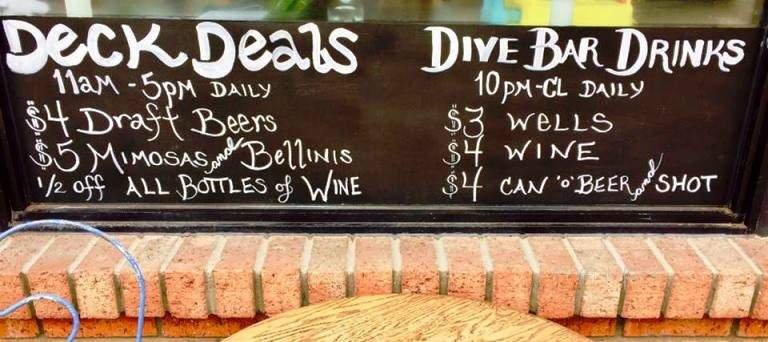 Deck Deals
11am - 5pm Daily
$4 Draft Beers
$5 Mimosas and Bellinis
1/2 off All Bottles of Wine
Dive Bar Drinks
10pm-CL Daily
$3 Wells
$4 Wine
$4 Can 'o' Beer and Shot